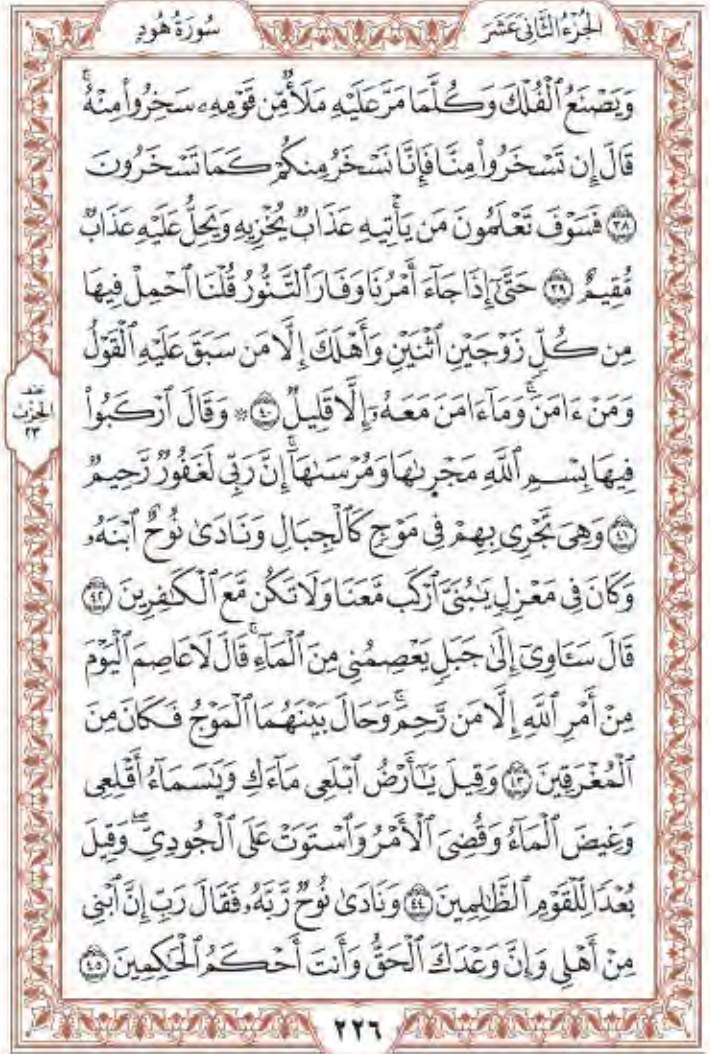 الجُزْءُ الثَّانِي عَشَرَ
سُورَةُ هُودٍ
وَيَصْنَعُ ٱلْفُلْكَ وَكُلَّمَا مَرَّ عَلَيْهِ مَلَأٌ مِّن قَوْمِهِۦ سَخِرُوا۟ مِنْهُ ۚ
قَالَ إِن تَسْخَرُوا۟ مِنَّا فَإِنَّا نَسْخَرُ مِنكُمْ كَمَا تَسْخَرُونَ
٣٨ فَسَوْفَ تَعْلَمُونَ مَن يَأْتِيهِ عَذَابٌ يُخْزِيهِ وَيَحِلُّ عَلَيْهِ عَذَابٌ
مُّقِيمٌ ٣٩ حَتَّىٰٓ إِذَا جَآءَ أَمْرُنَا وَفَارَ ٱلتَّنُّورُ قُلْنَا ٱحْمِلْ فِيهَا
مِن كُلٍّ زَوْجَيْنِ ٱثْنَيْنِ وَأَهْلَكَ إِلَّا مَن سَبَقَ عَلَيْهِ ٱلْقَوْلُ
وَمَنْ ءَامَنَ ۚ وَمَآ ءَامَنَ مَعَهُۥٓ إِلَّا قَلِيلٌ ٤٠ ۞ وَقَالَ ٱرْكَبُوا۟
فِيهَا بِسْمِ ٱللَّهِ مَجْر۪ىٰهَا وَمُرْسَىٰهَآ ۚ إِنَّ رَبِّى لَغَفُورٌ رَّحِيمٌ
٤١ وَهِىَ تَجْرِى بِهِمْ فِى مَوْجٍ كَٱلْجِبَالِ وَنَادَىٰ نُوحٌ ٱبْنَهُۥ
وَكَانَ فِى مَعْزِلٍ يَـٰبُنَىَّ ٱرْكَب مَّعَنَا وَلَا تَكُن مَّعَ ٱلْكَـٰفِرِينَ ٤٢
قَالَ سَـَٔاوِىٓ إِلَىٰ جَبَلٍ يَعْصِمُنِى مِنَ ٱلْمَآءِ ۚ قَالَ لَا عَاصِمَ ٱلْيَوْمَ
مِنْ أَمْرِ ٱللَّهِ إِلَّا مَن رَّحِمَ ۚ وَحَالَ بَيْنَهُمَا ٱلْمَوْجُ فَكَانَ مِنَ
ٱلْمُغْرَقِينَ ٤٣ وَقِيلَ يَـٰٓأَرْضُ ٱبْلَعِى مَآءَكِ وَيَـٰسَمَآءُ أَقْلِعِى
وَغِيضَ ٱلْمَآءُ وَقُضِىَ ٱلْأَمْرُ وَٱسْتَوَتْ عَلَى ٱلْجُودِىِّ ۖ وَقِيلَ
بُعْدًا لِّلْقَوْمِ ٱلظَّـٰلِمِينَ ٤٤ وَنَادَىٰ نُوحٌ رَّبَّهُۥ فَقَالَ رَبِّ إِنَّ ٱبْنِى
مِنْ أَهْلِى وَإِنَّ وَعْدَكَ ٱلْحَقُّ وَأَنتَ أَحْكَمُ ٱلْحَـٰكِمِينَ ٤٥
الحِزْب
٢٣
٢٢٦